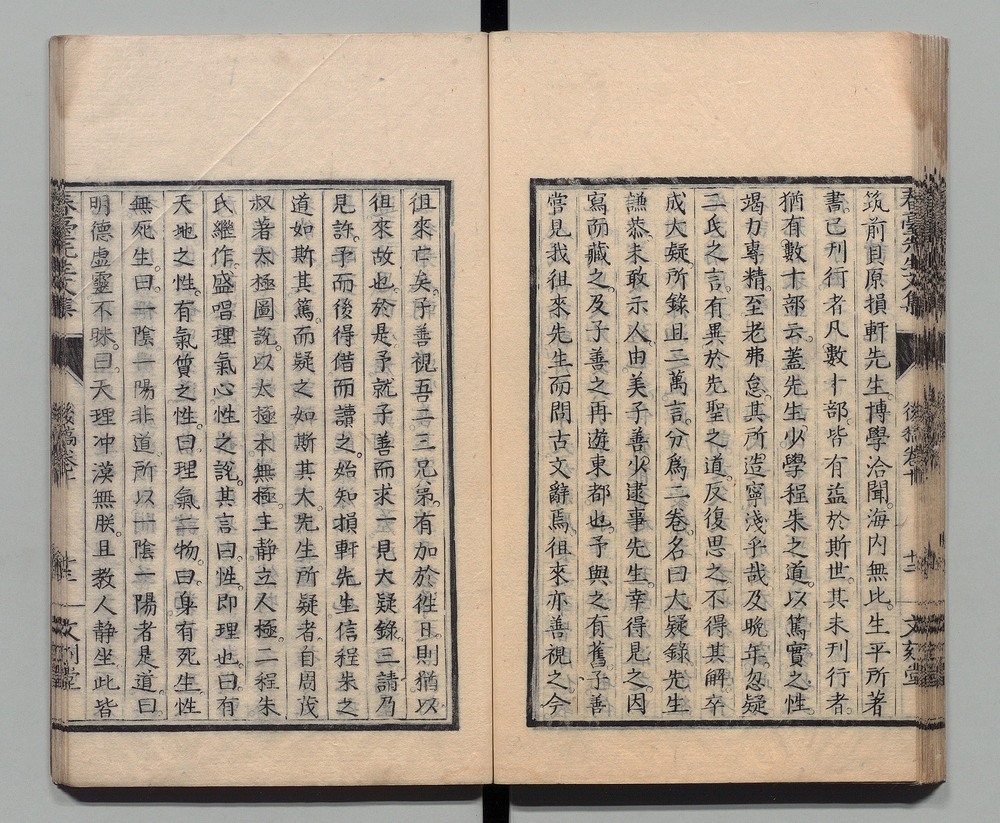 筑前貝原損軒先生。博學洽聞。海內無比。生平所著
書。已刋行者凡數十部。皆有益於斯世。其未刋行者。
猶有數十部云。蓋先生少學程朱之道。以篤實之性。
竭力專精。至老弗怠。其所造寧淺乎哉。及晚年。忽疑
二氏之言。有異於先聖之道。反復思之。不得其解。卒
成大疑所錄且二萬言。分爲二卷。名曰大疑錄。先生
謙恭。未敢示人。由美子善少逮事先生。幸得見之。因
寫而藏之。及子善之再遊東都也。予與之有舊。子善
嘗見我徂來先生而問古文辭焉。徂來亦善視之。今
徂來亡矣。子善視吾二三兄弟。有加於徃日。則猶以
徂來故也。於是予就子善而求一見大疑錄。三請乃
見許。予而後得借而讀之。始知損軒先生信程朱之
道如斯其篤。而疑之如斯其大。先生所疑者。自周茂
叔著太極圖說。以太極本無極。主静立人極。二程朱
氏繼作。盛唱理氣心性之說。其言曰。性。即理也。曰。有
天地之性。有氣質之性。曰。理氣二物。曰。身有死生。性
無死生。曰。一陰一陽非道。所以一陰一陽者是道。曰。
明德虛靈不昧。曰。天理冲漠無朕。且教人静坐。此皆
春臺先生文集
後稿卷十
十二
文刻堂
春臺先生文集
後稿卷十
十三
文刻堂